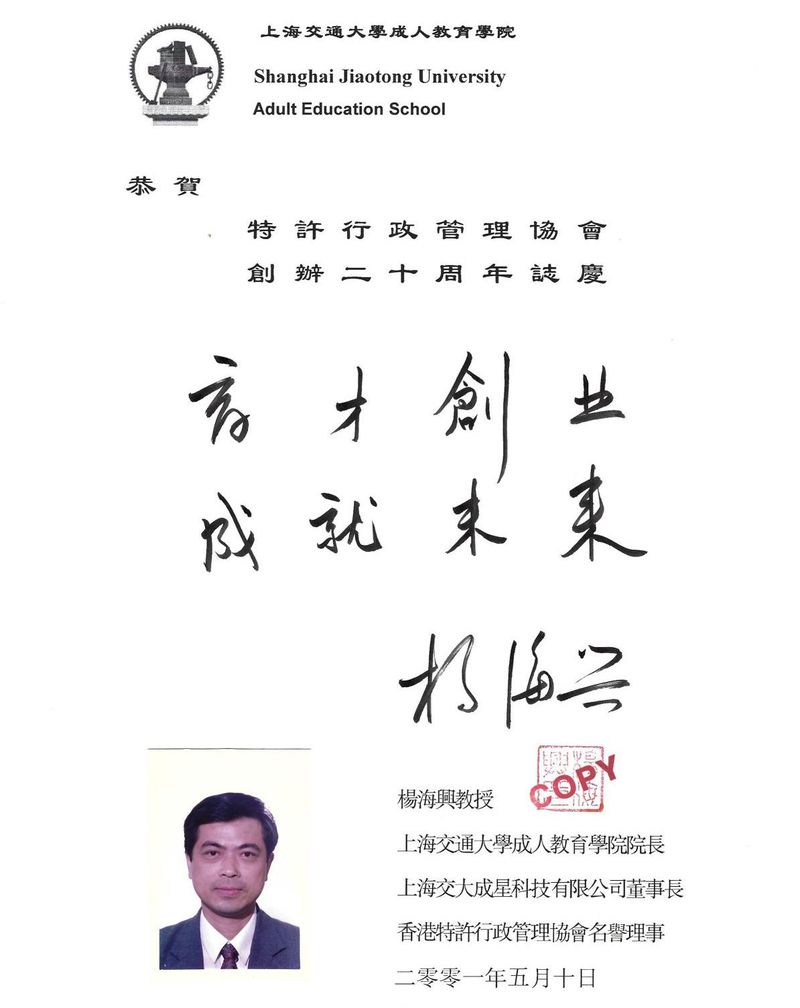 上海交通大學成人教育學院
Shanghai Jiaotong University
Adult Education School
恭賀
特許行政管理協會
創辦二十周年誌慶
育才創业
成就未来
杨海兴
COPY
楊海興教授
上海交通大學成人教育學院院長
上海交大成星科技有限公司董事長
香港特許行政管理協會名譽理事
二零零一年五月十日